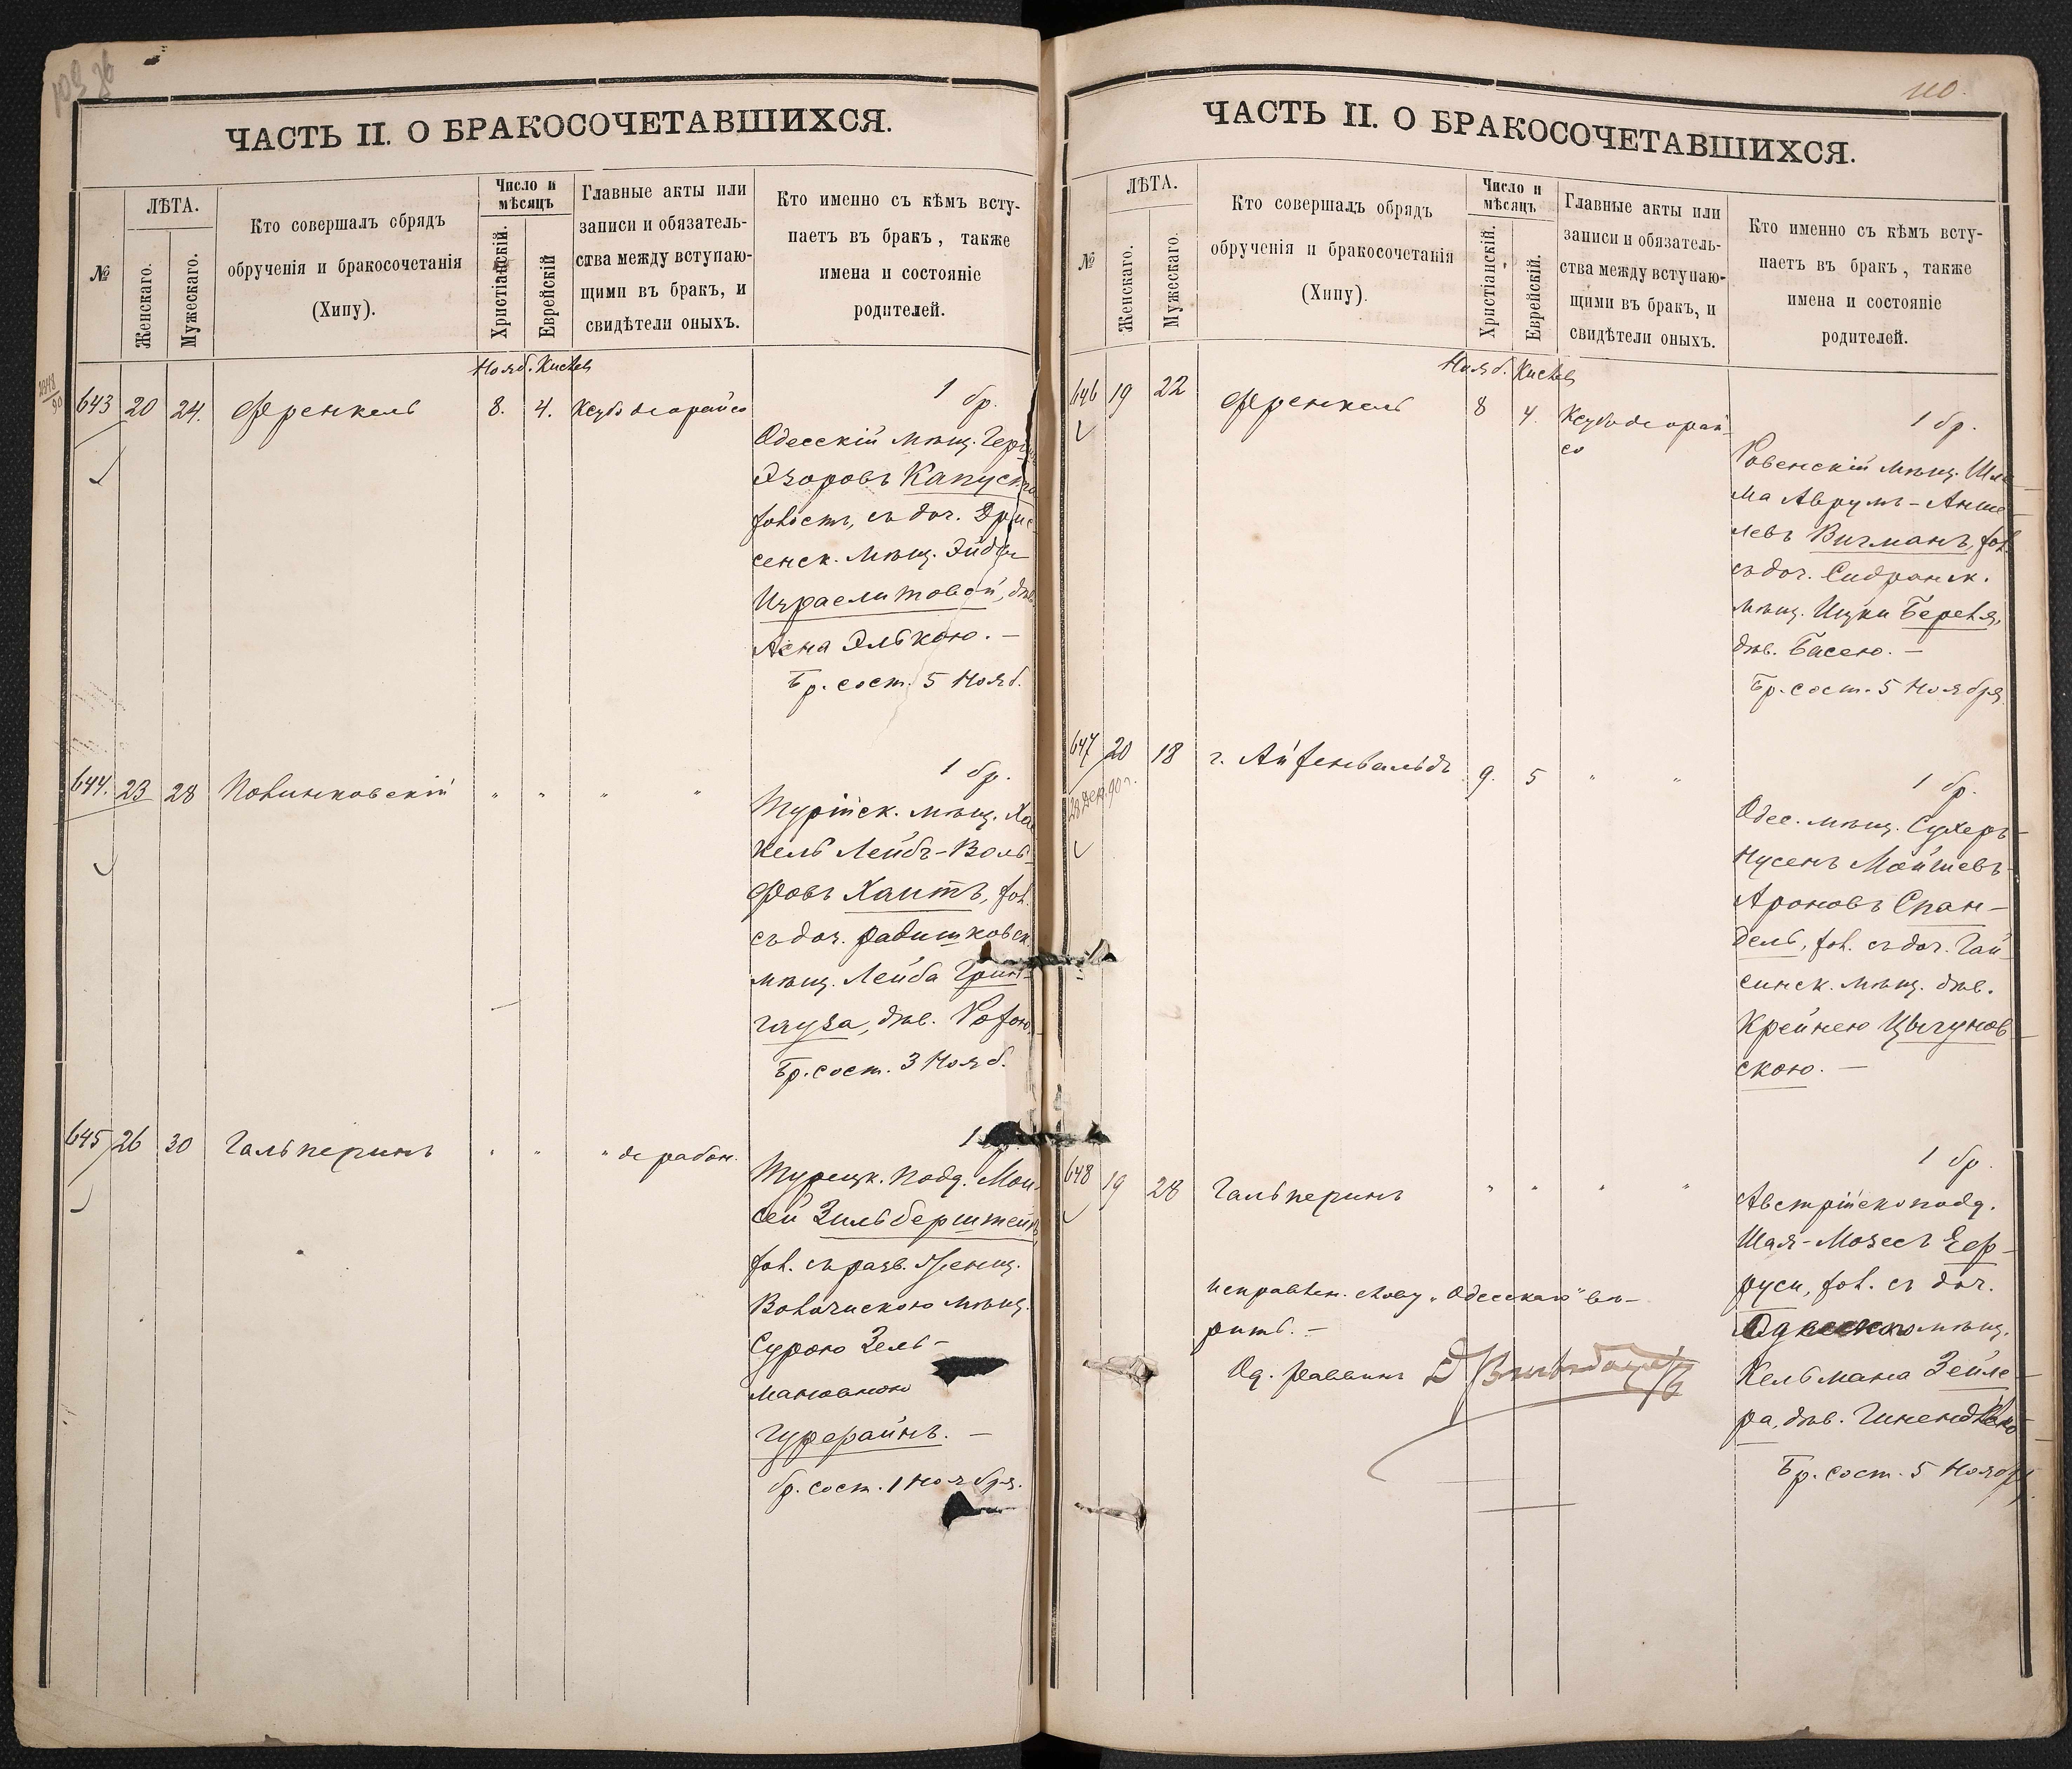 109 об
ЧАСТЬ II. О БРАКОСОЧЕТАВШИХСЯ.
№
ЛѢТА.
Женскаго.
Мужескаго.
Кто совершалъ обрядъ
обрученія и бракосочетанія
(Хипу).
Число и
мѣсяцъ
Христіанскій.
Еврейскій
Главные акты или
записи и обязатель-
ства между вступаю-
щими въ бракъ, и
свидѣтели оныхъ.
Кто именно съ кѣмъ всту-
паетъ въ бракъ, также
имена и состояніе
родителей.
Нояб. Кислев
643 20 24. Френкель 8. 4. Ксубе деорайсо
1 бр.
Одесскій мѣщ.
Эзоровъ Капуст
холост, съ доч.
сенск. мѣщ.
Израелитовой, дѣв.
Асна Элькою. —
Бр. сост. 5 Нояб.
644. 23 28 " " " "
1 бр.
Турійск. мѣщ. Ха
кель Лейбъ-Воль-
фовъ Хаитъ, хол.
съ доч. радишковск.
мѣщ. Лейба Грин-
гауза, дѣв. Розою.
Бр. сост. 3 Нояб.
645 26 30 Гальперинъ " " " де рабон.
1
Турецк. подд. Мои-
сей Зильберштейнъ,
хол. съ разв. женщ.
Волочискою мѣщ.
Сурою Зель-
мановною
Гурфрайнъ. —
бр. сост. 1 Ноября.
110.
ЧАСТЬ II. О БРАКОСОЧЕТАВШИХСЯ.
№
ЛѢТА.
Женскаго.
Мужескаго.
Кто совершалъ обрядъ
обрученія и бракосочетанія
(Хипу).
Число и
мѣсяцъ
Христіанскій.
Еврейскій.
Главные акты или
записи и обязатель-
ства между вступаю-
щими въ бракъ, и
свидѣтели оныхъ.
Кто именно съ кѣмъ всту-
паетъ въ бракъ, также
имена и состояніе
родителей.
Нояб. Кислев
646 19 22 Френкель 8 4. Ксубе деорай-
со
1 бр.
Ровенскій мѣщ. Шле-
ма Аврумъ-Анше-
левъ Вигманъ, хол.
съ доч. Сидранск.
мѣщ. Ицки Береля,
дѣв. Басею. —
Бр. сост. 5 Ноября
647 20 18 г. Айзенвальдъ 9. 5 " "
28 Дек. 90 г.
1 бр.
Одес. мѣщ. Сухеръ-
Нусенъ Мойшевъ-
Ароновъ Спан-
дель, хол. съ доч. Гай-
синск. мѣщ. дѣв.
Крейнею Цыгунов-
скою. —
648 19 28 Гальперинъ " " " "
1 бр.
Австрійско подд.
Шая-Мозесъ Еф-
руси, хол. съ доч.
мѣщ.
Кельмана Зейле-
ра, дѣв.
Бр. сост. 5 Ноября
исправлен. слову "Одесскаго" вѣ-
рить. —
Од. Раввинъ